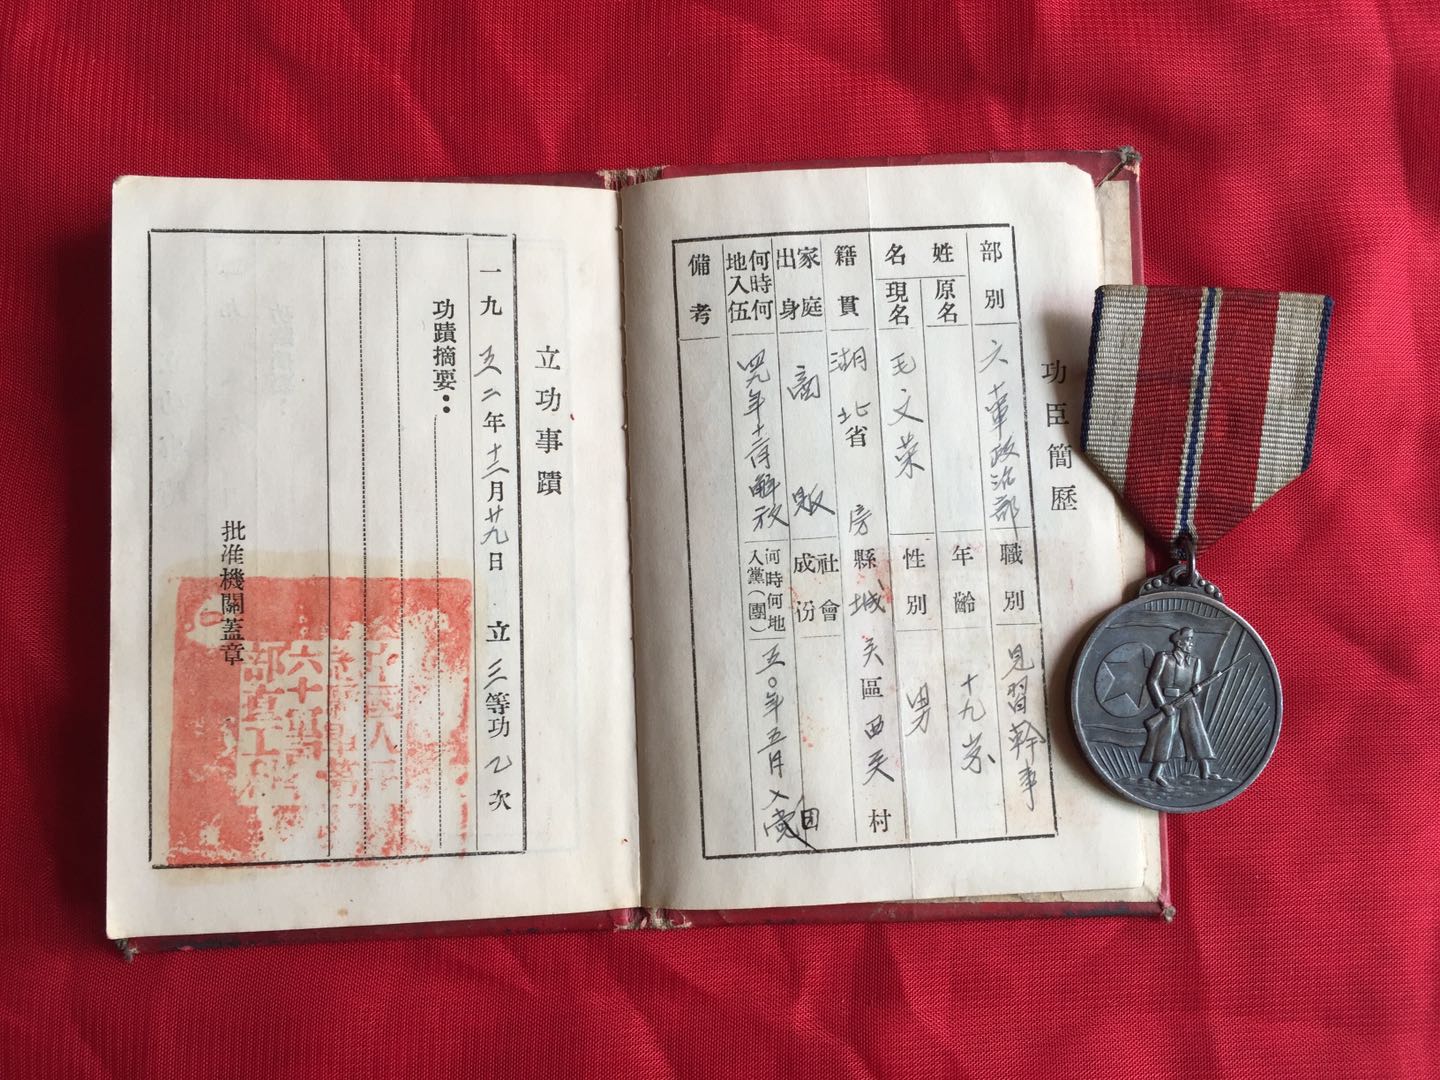 功臣簡歷
部別 六軍政治部 職別 見習幹事
姓名 原名 年齡 十九岁
現名 毛文荣 性別 男
籍貫 湖北省 房縣 城关區 西关村
家庭出身 商販 社會成份
何時何地入伍 四九年十二月解放 何時何地入黨(團) 五〇年五月入团
備考
立功事蹟
一九五二年十二月廿九日 立三等功乙次
功蹟摘要：
批准機關蓋章